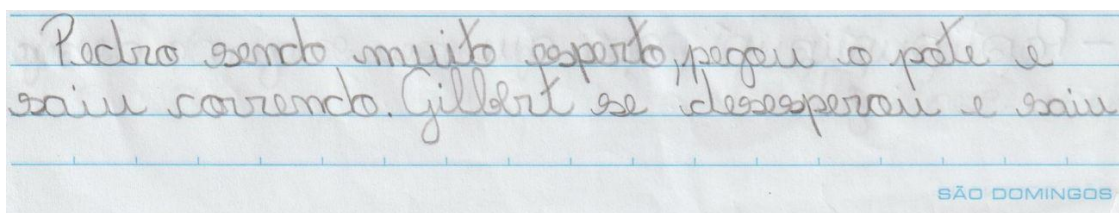 Pedro sendo muito esperto, pegou o pote e
saiu correndo. Gilbert se desesperou e saiu
SÃO DOMINGOS